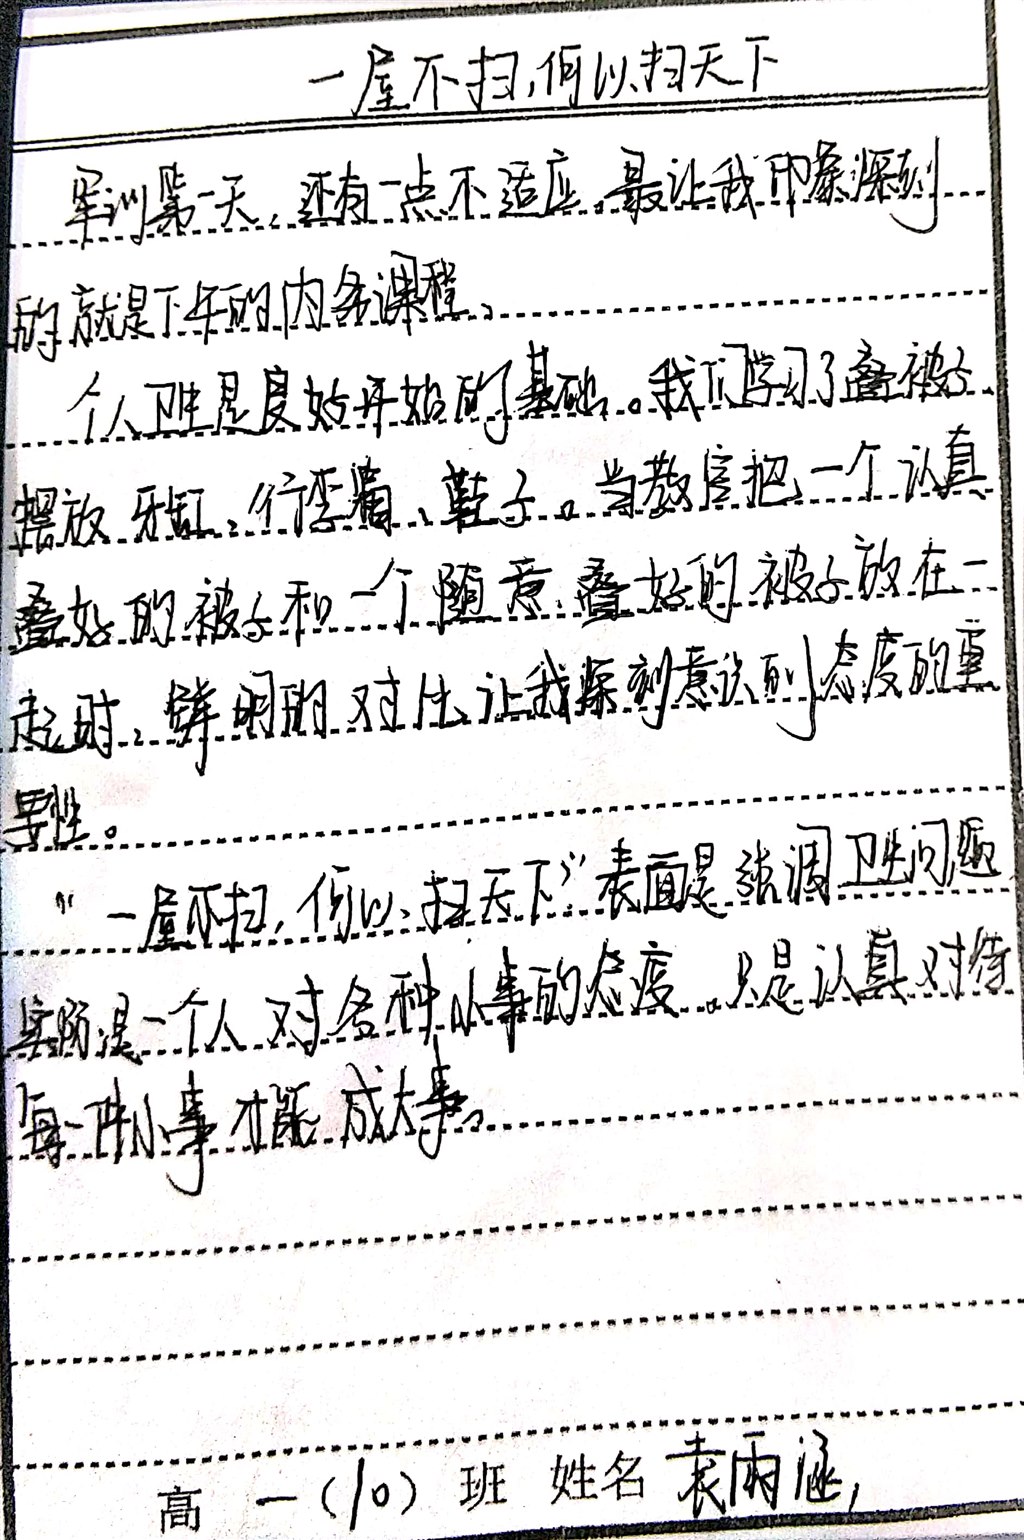 一屋不扫,何以扫天下
军训第一天,还有一点不适应。最让我印象深刻
的就是下午的内务课程。
个人卫生是良好开始的基础。我们学习了叠被子、
摆放牙缸、行李箱、鞋子。当教官把一个认真
叠好的被子和一个随意叠好的被子放在一
起时,鲜明的对比让我深刻意识到态度的重
要性。
“一屋不扫,何以扫天下”表面是强调卫生问题
实际是一个人对各种小事的态度。只是认真对待
每一件小事才能成大事。
高一(10)班 姓名 袁雨涵